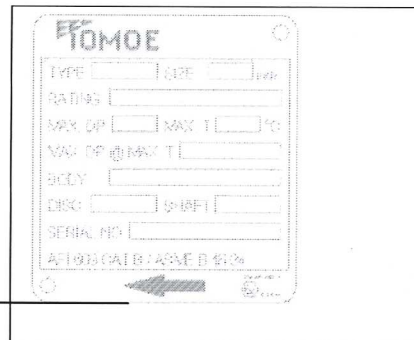 TOMOE
TYPE SIZE
RATING
MAX DP MAX T °C
MAX DP @ MAX T
BODY
DISC SHAFT
SERIAL NO
API 609 CAT B / ASME B 16.34